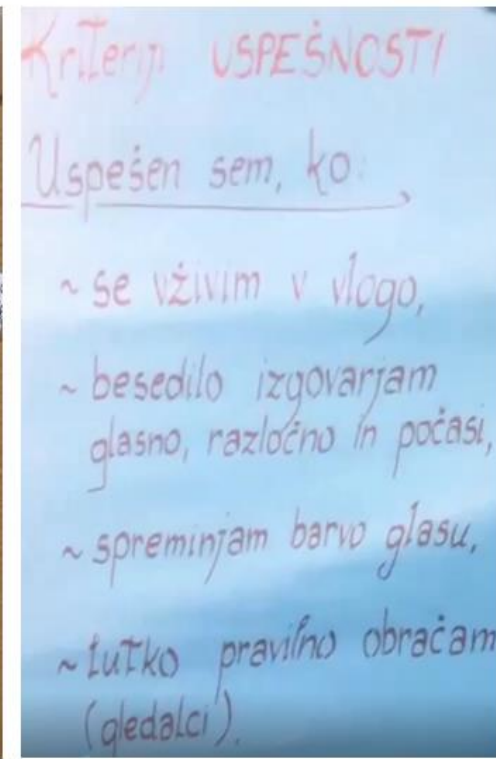 Kriteriji USPEŠNOSTI
Uspešen sem, ko:
~ se vživim v vlogo,
~ besedilo izgovarjam
glasno, razločno in počasi,
~ spreminjam barvo glasu,
~ lutko pravilno obračam
(gledalci).